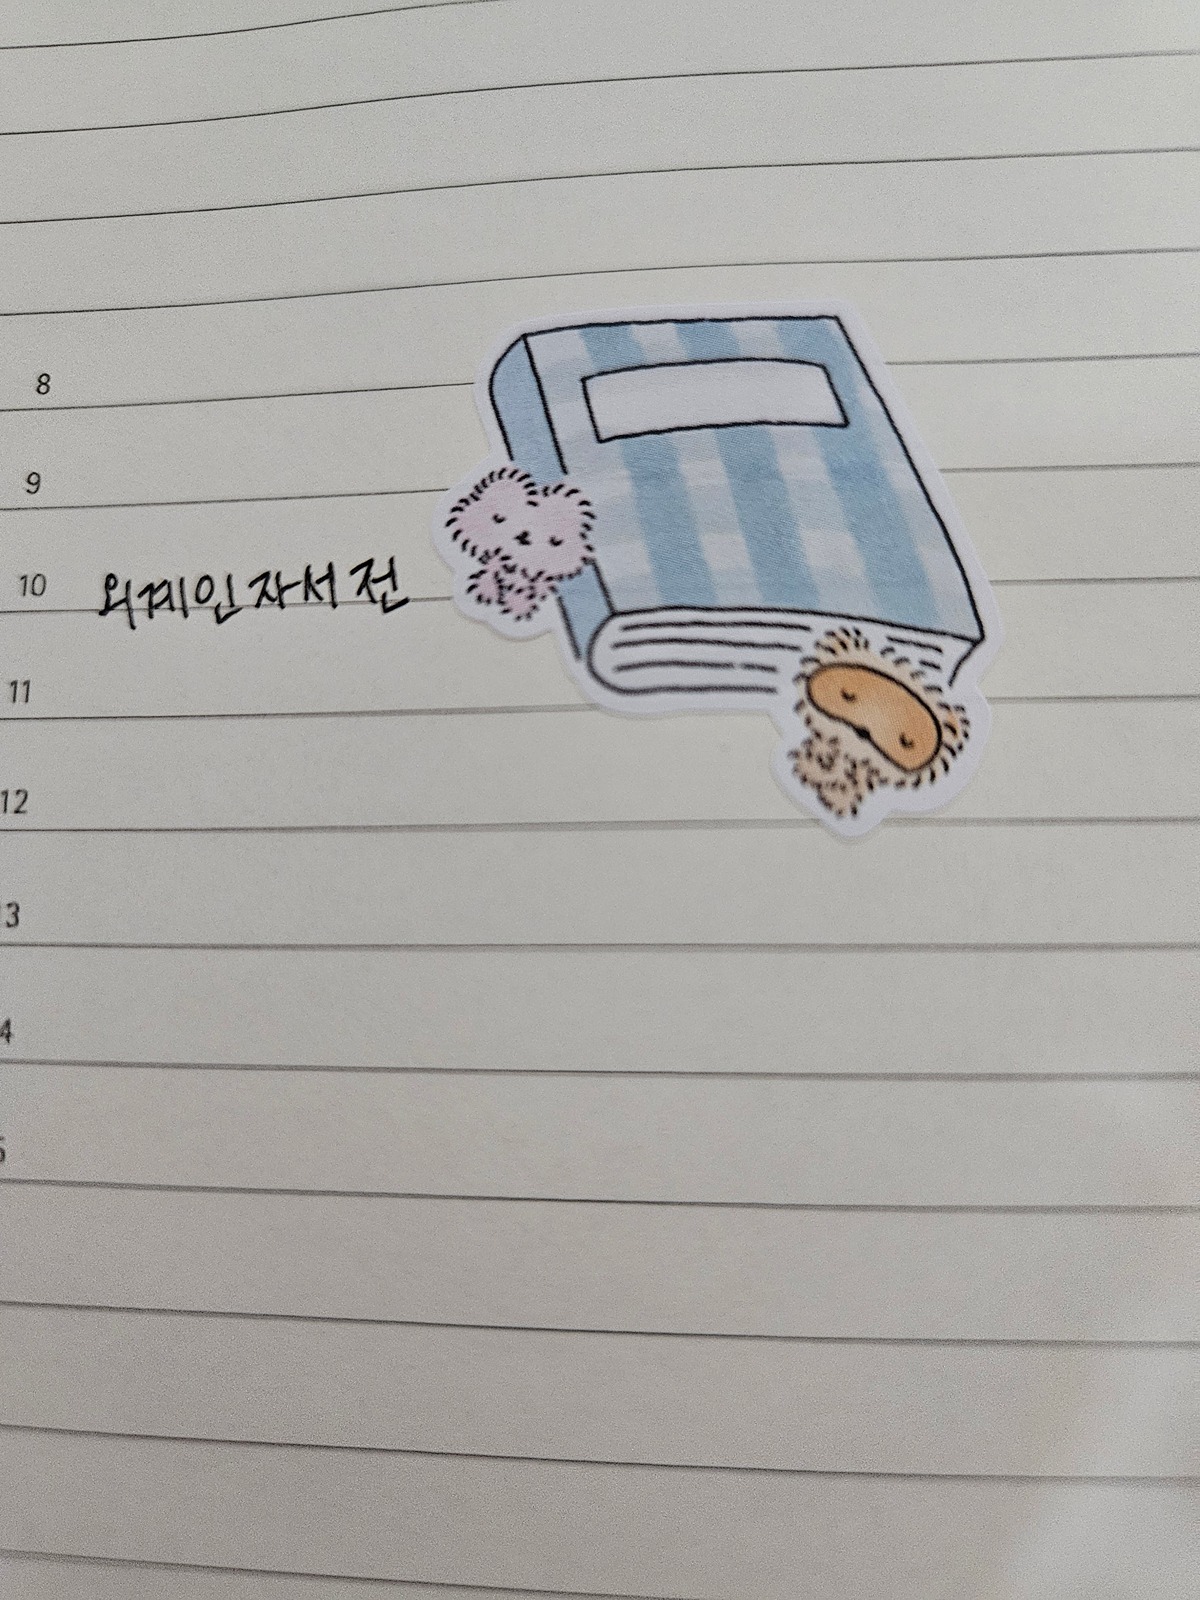 8
9
10 외계인자서전
11
12
13
4
5